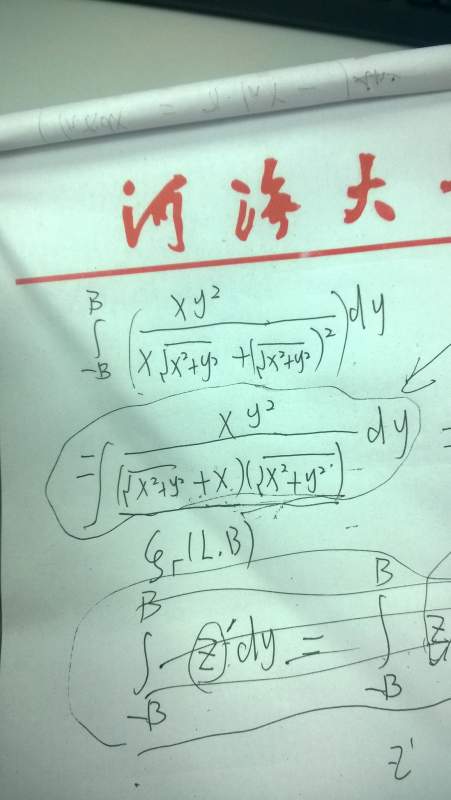 河海大
∫_{-B}^{B} (xy² / (x√(x²+y²) + (√(x²+y²))²)) dy
= ∫ xy² / ((√(x²+y²) + x)(√(x²+y²))) dy =
(L.B)
∫_{-B}^{B} z' dy = ∫_{-B}^{B} z
z'